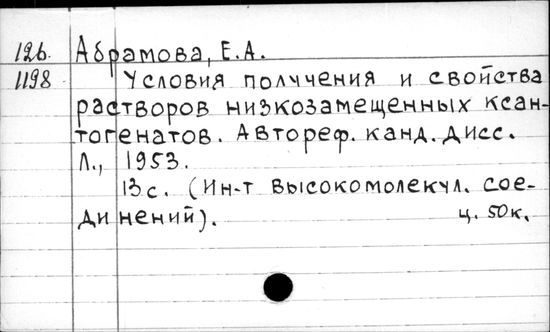 126. Абрамова, Е.А.
1198 Условия получения и свойства
растворов низкозамещенных ксан-
тогенатов. Автореф. канд. дисс.
Л., 1953.
13с. (Ин-т высокомолекул. сое-
динений). ц. 50к.